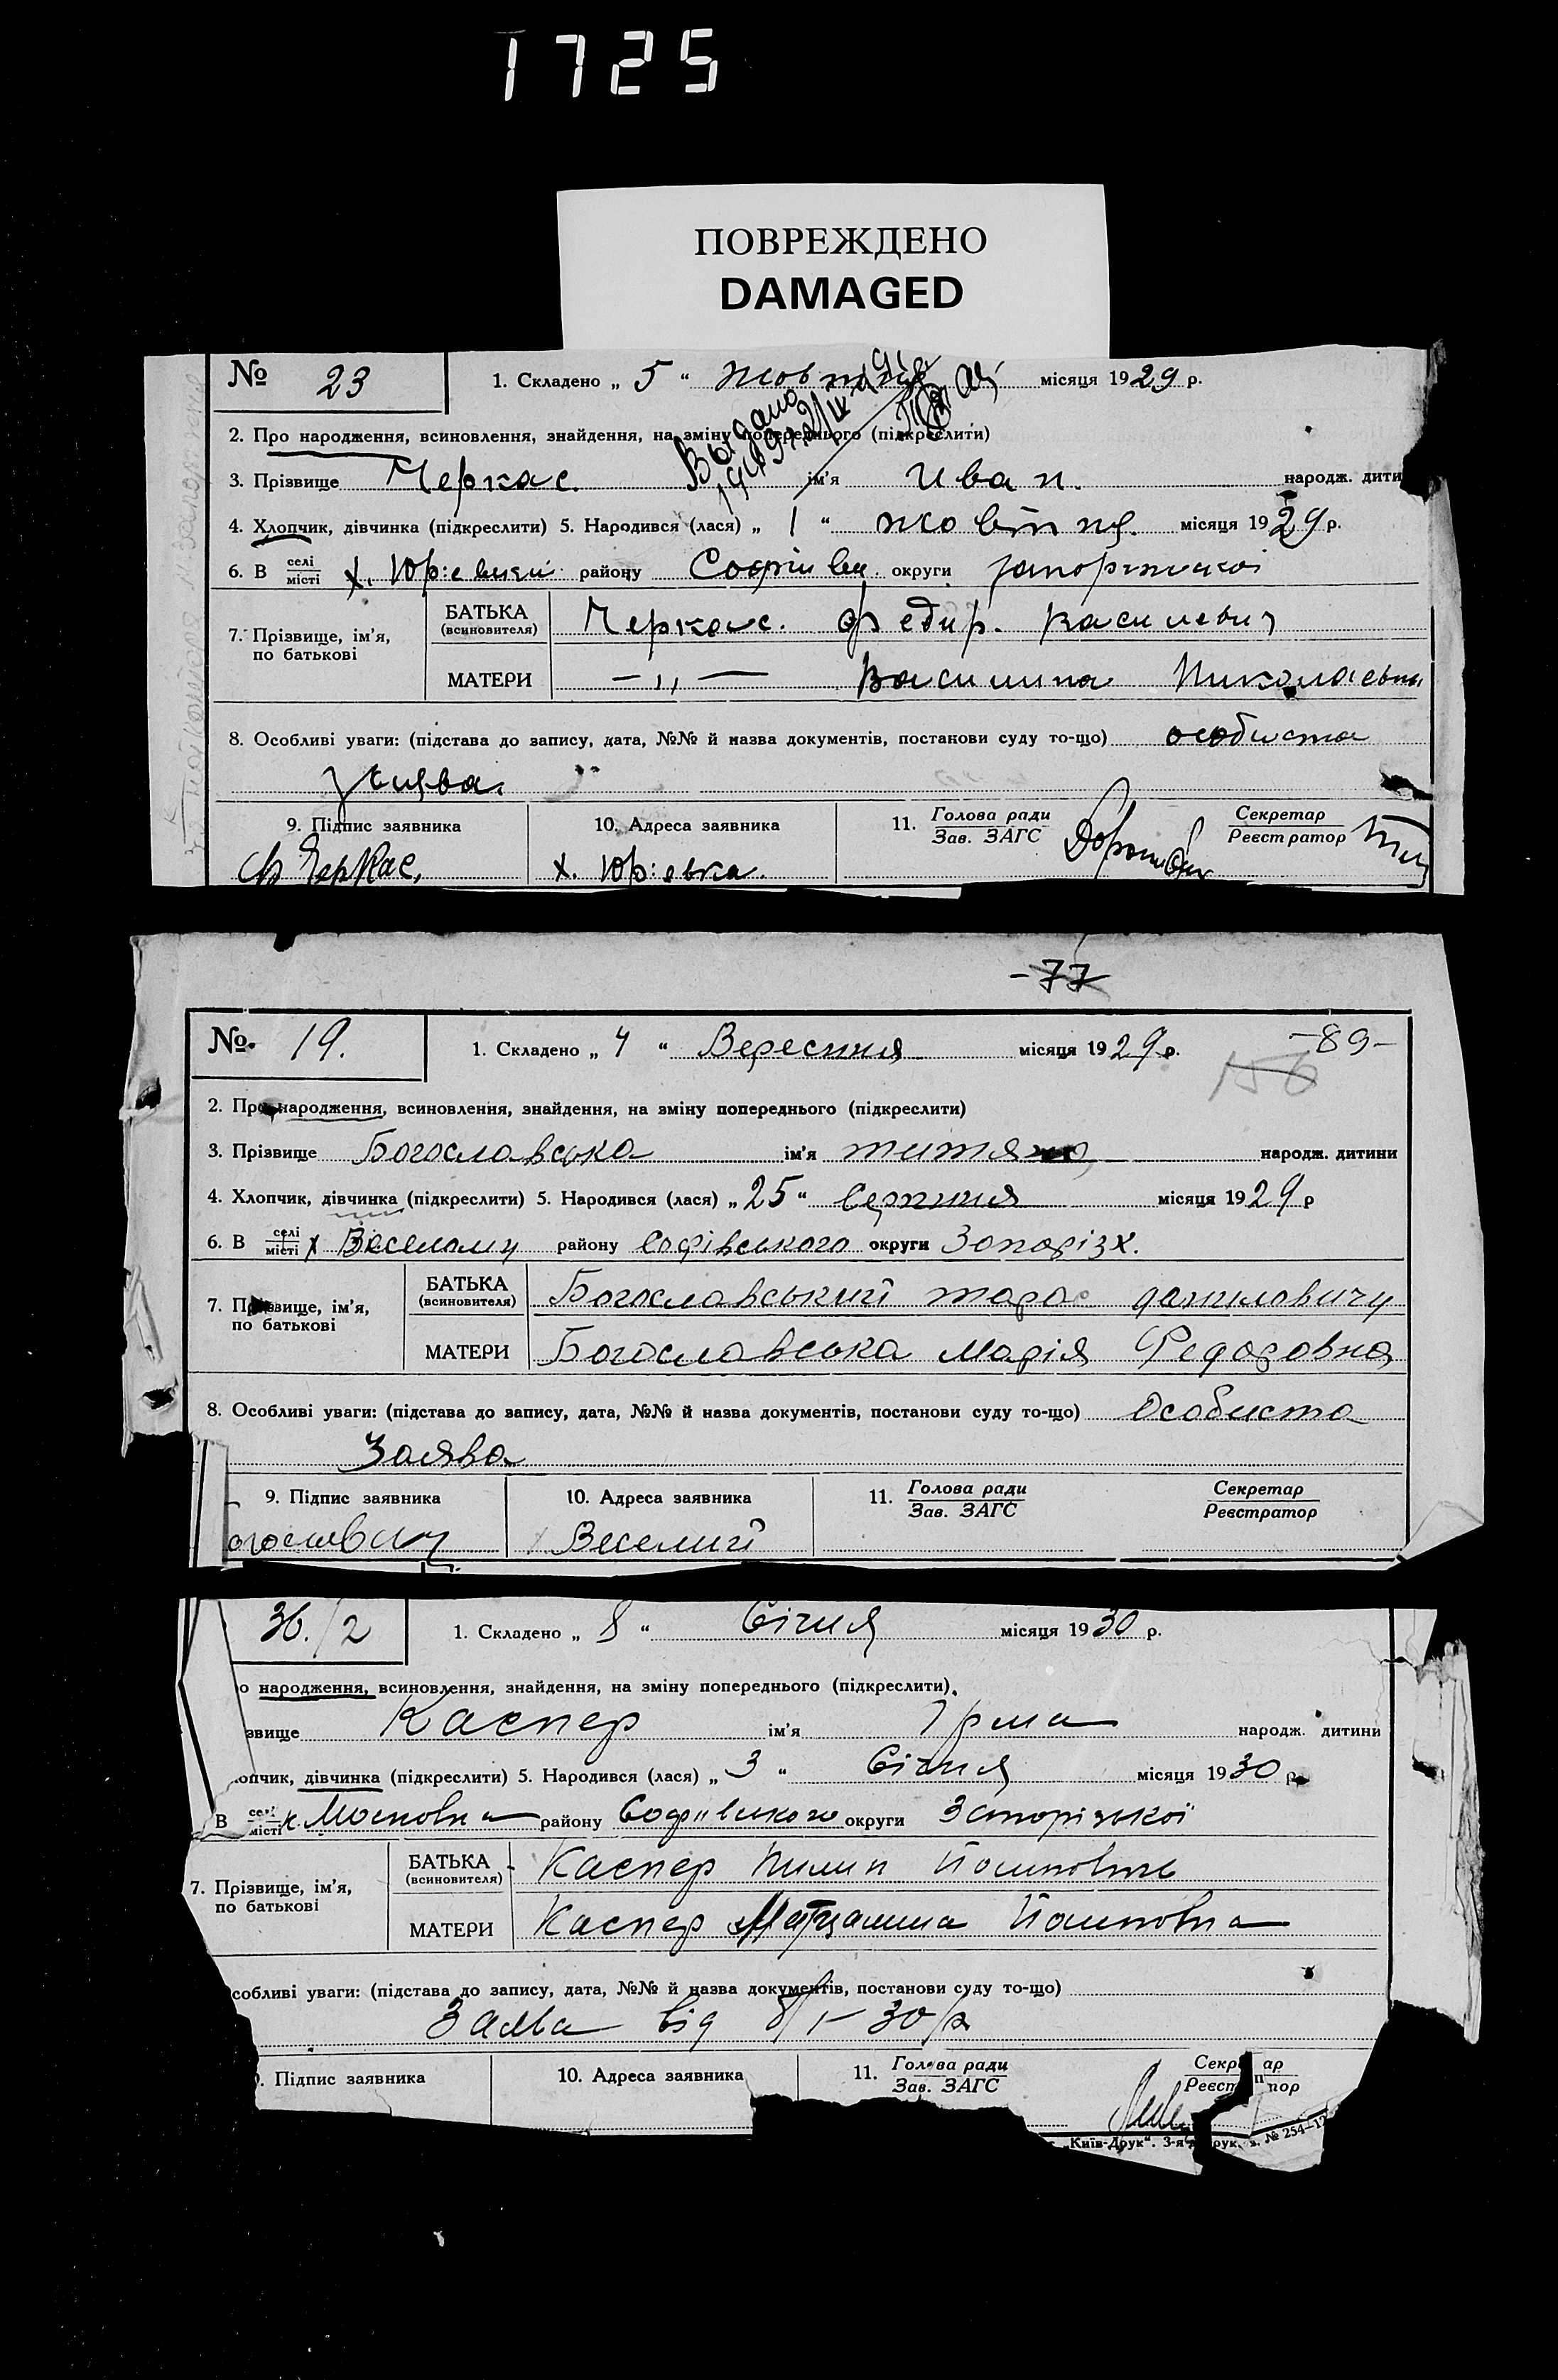 1725
ПОВРЕЖДЕНО
DAMAGED
№ 23 1. Складено „ 5 “ жовтня місяця 1929 р.
Выдано
2. Про народження, всиновлення, знайдення, на зміну попереднього (підкреслити)
3. Прізвище Черкас. ім'я Иван. народж. дити
4. Хлопчик, дівчинка (підкреслити) 5. Народився (лася) „ 1 “ жовтня місяця 1929 р.
6. В селі/місті х. Юр:евиъи району Софіївки округи Запоріжжкоі
7. Прізвище, ім'я, по батькові БАТЬКА (всиновителя) Черкас. Федир. Василевич
МАТЕРИ —„— Василина Николаевна
8. Особливі уваги: (підстава до запису, дата, №№ й назва документів, постанови суду то-що) особиста
заява.
9. Підпис заявника 10. Адреса заявника 11. Голова ради/Зав. ЗАГС Секретар/Реєстратор
Ф Черкас, х. Юр:евка.
-77
№ 19. 1. Складено „ 4 “ Вересння місяця 1929 р. -89-
156
2. Про народження, всиновлення, знайдення, на зміну попереднього (підкреслити)
3. Прізвище Богославська ім'я народж. дитини
4. Хлопчик, дівчинка (підкреслити) 5. Народився (лася) „ 25 “ Серпния місяця 1929 р
6. В селі/місті х Веселому району Софівського округи Запорізх.
7. Прізвище, ім'я, по батькові БАТЬКА (всиновителя) Богославський тарас даниловичу
МАТЕРИ Богославська Марія Федоровна
8. Особливі уваги: (підстава до запису, дата, №№ й назва документів, постанови суду то-що) Особиста
Заява
9. Підпис заявника 10. Адреса заявника 11. Голова ради/Зав. ЗАГС Секретар/Реєстратор
х Веселий
36./2 1. Складено „ 8 “ Січня місяця 1930 р.
о народження, всиновлення, знайдення, на зміну попереднього (підкреслити).
звище Каспер ім'я Ірма народж. дитини
опчик, дівчинка (підкреслити) 5. Народився (лася) „ 3 “ Січня місяця 1930 р.
В селі/місті х. Московка району Софіївського округи Запорізької
7. Прізвище, ім'я, по батькові БАТЬКА (всиновителя) Каспер Пилип
МАТЕРИ Каспер
собливі уваги: (підстава до запису, дата, №№ й назва документів, постанови суду то-що)
Заява від 8/I-30/р
. Підпис заявника 10. Адреса заявника 11. Голова ради/Зав. ЗАГС
„Київ-Друк“. 3-я друк. з. № 254—12